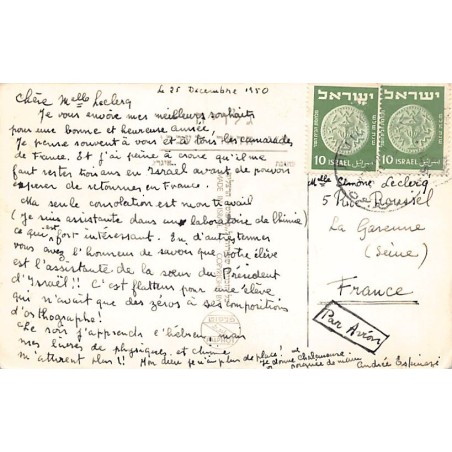 Le 25 Decembre 1950
Chère Melle Leclerq
Je vous envoie mes meilleurs souhaits
pour une bonne et heureuse année.
Je pense souvent à vous et à tous les camarades
de France. Et j'ai peine à croire qu'il me
faut rester
ans en Israel avant de pouvoir
esperer de retourner en France.
Ma seule consolation est mon travail
(Je suis assistante dans un laboratoire de Chimie)
ce qui est fort interessant. En d'autres termes
vous avez l'honneur de savoir que votre élève
est l'assistante de la sœur du Président
d'Israël!! C'est flatteur pour une élève
qui n'avait que des zéros à ses compositions
d'orthographe!
Le soir j'apprends l'hébreu mais
mes livres de physiques et chimie
m'attirent plus!! Mon Dieu je n'ai plus de place!
et
Je donne
Andrée Espinasi
ישראל
10 ISRAEL
ישראל
10 ISRAEL
Melle Simone Leclerq
5 Rue Roussel
La Garenne
(Seine)
France
Par Avion